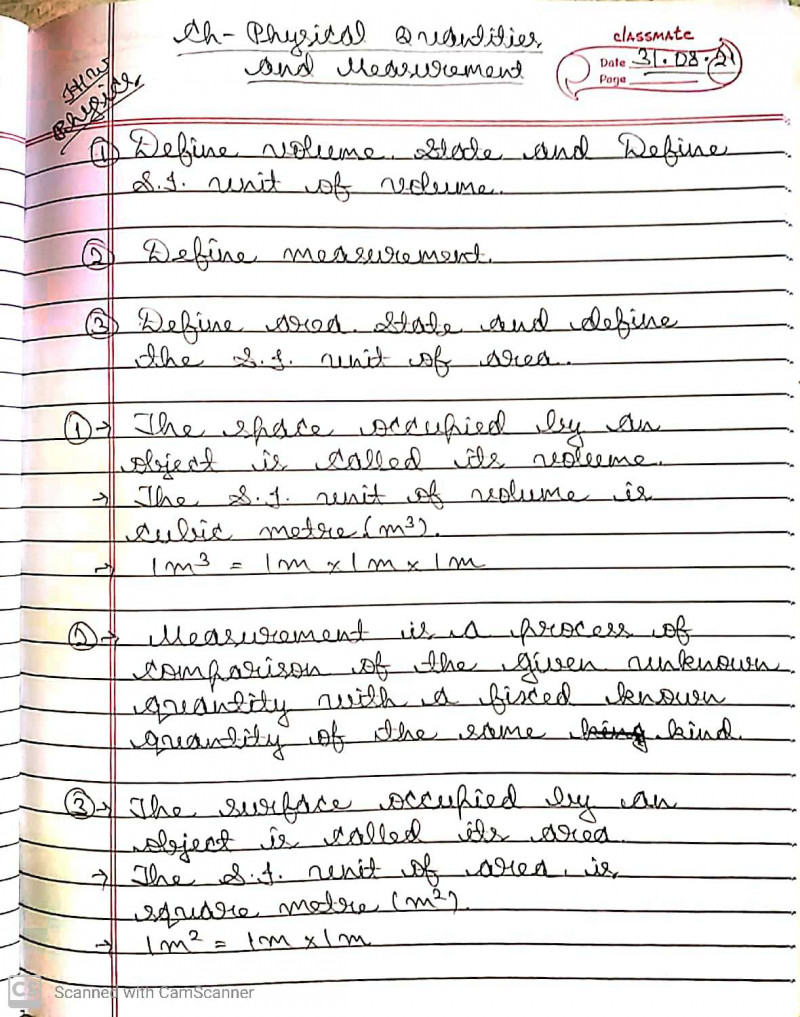 Ch- Physical Quantities
and Measurement
classmate
Date 31.08.21
Page
H.W
Physics
① Define volume. State and Define
S.I. unit of volume.
② Define measurement.
③ Define area. State and define
the S.I. unit of area.
①→ The space occupied by an
object is called its volume.
→ The S.I. unit of volume is
cubic metre (m³).
→ 1m³ = 1m x 1m x 1m
②→ Measurement is a process of
comparison of the given unknown
quantity with a fixed known
quantity of the same king kind.
③→ The surface occupied by an
object is called its area.
→ The S.I. unit of area is
square metre (m²).
→ 1m² = 1m x 1m
CS Scanned with CamScanner